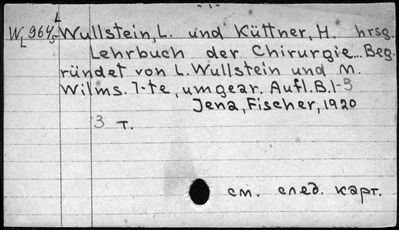 W 964 Wullstein, L. und Küttner, H. hrsg.
Lehrbuch der Chirurgie... Beg-
ründet von L. Wullstein und M.
Wilms. 7-te, umgear. Aufl. B. 1-3
Jena, Fischer, 1920
3 т.
см. след. карт.